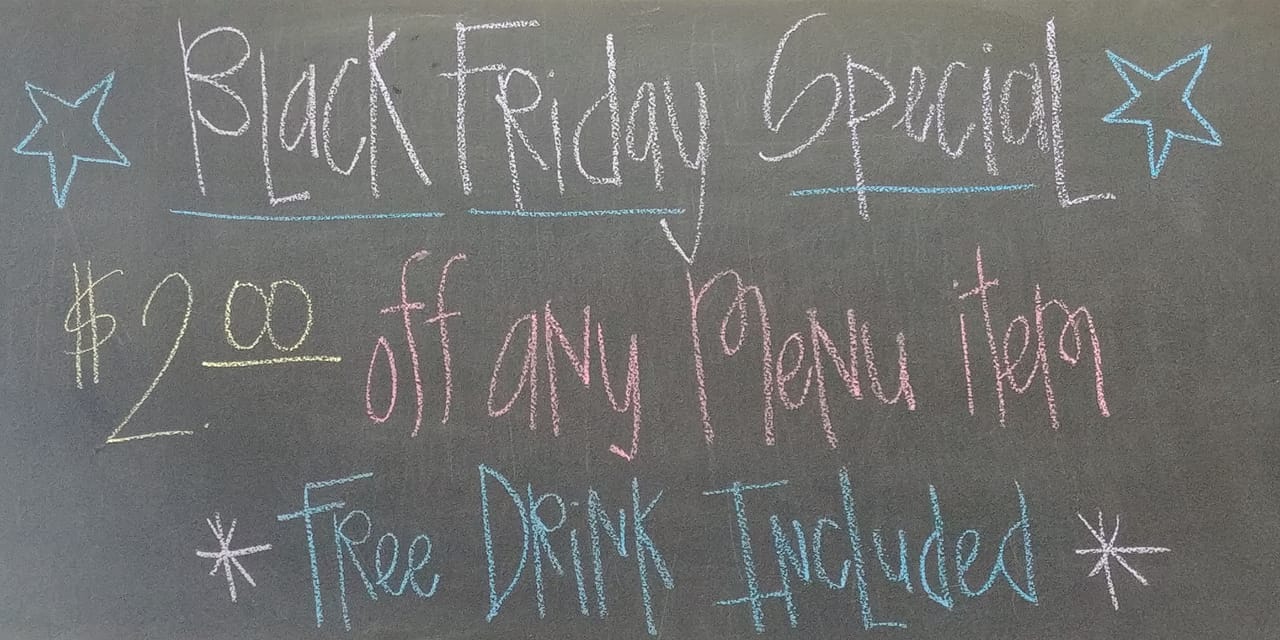 Black Friday Special
$2.00 off any Menu item
* Free Drink Included *